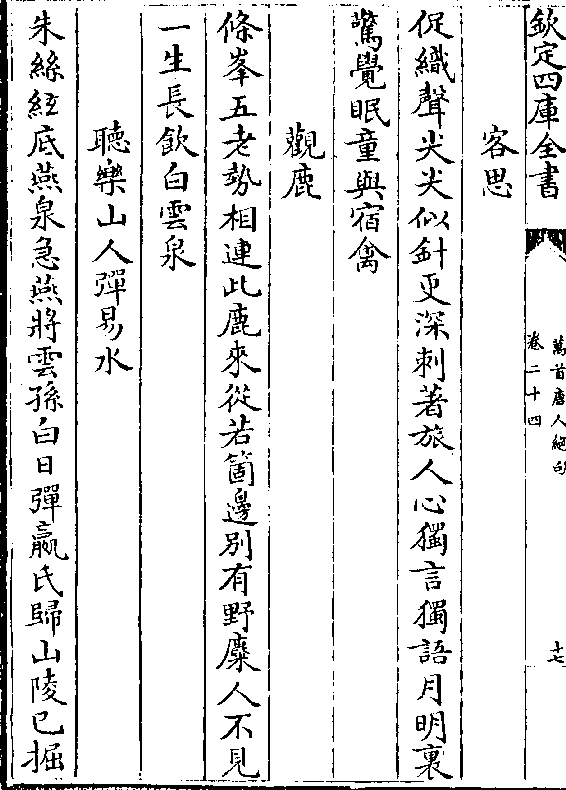 欽定四庫全書
萬首唐人絕句
卷二十四
十七
客思
促織聲尖尖似針更深刺著旅人心獨言獨語月明裏
驚覺眠童與宿禽
觀鹿
條峯五老勢相連此鹿來從若箇邊別有野麋人不見
一生長飲白雲泉
聽樂山人彈易水
朱絲絃底燕泉急燕將雲孫白日彈嬴氏歸山陵已掘